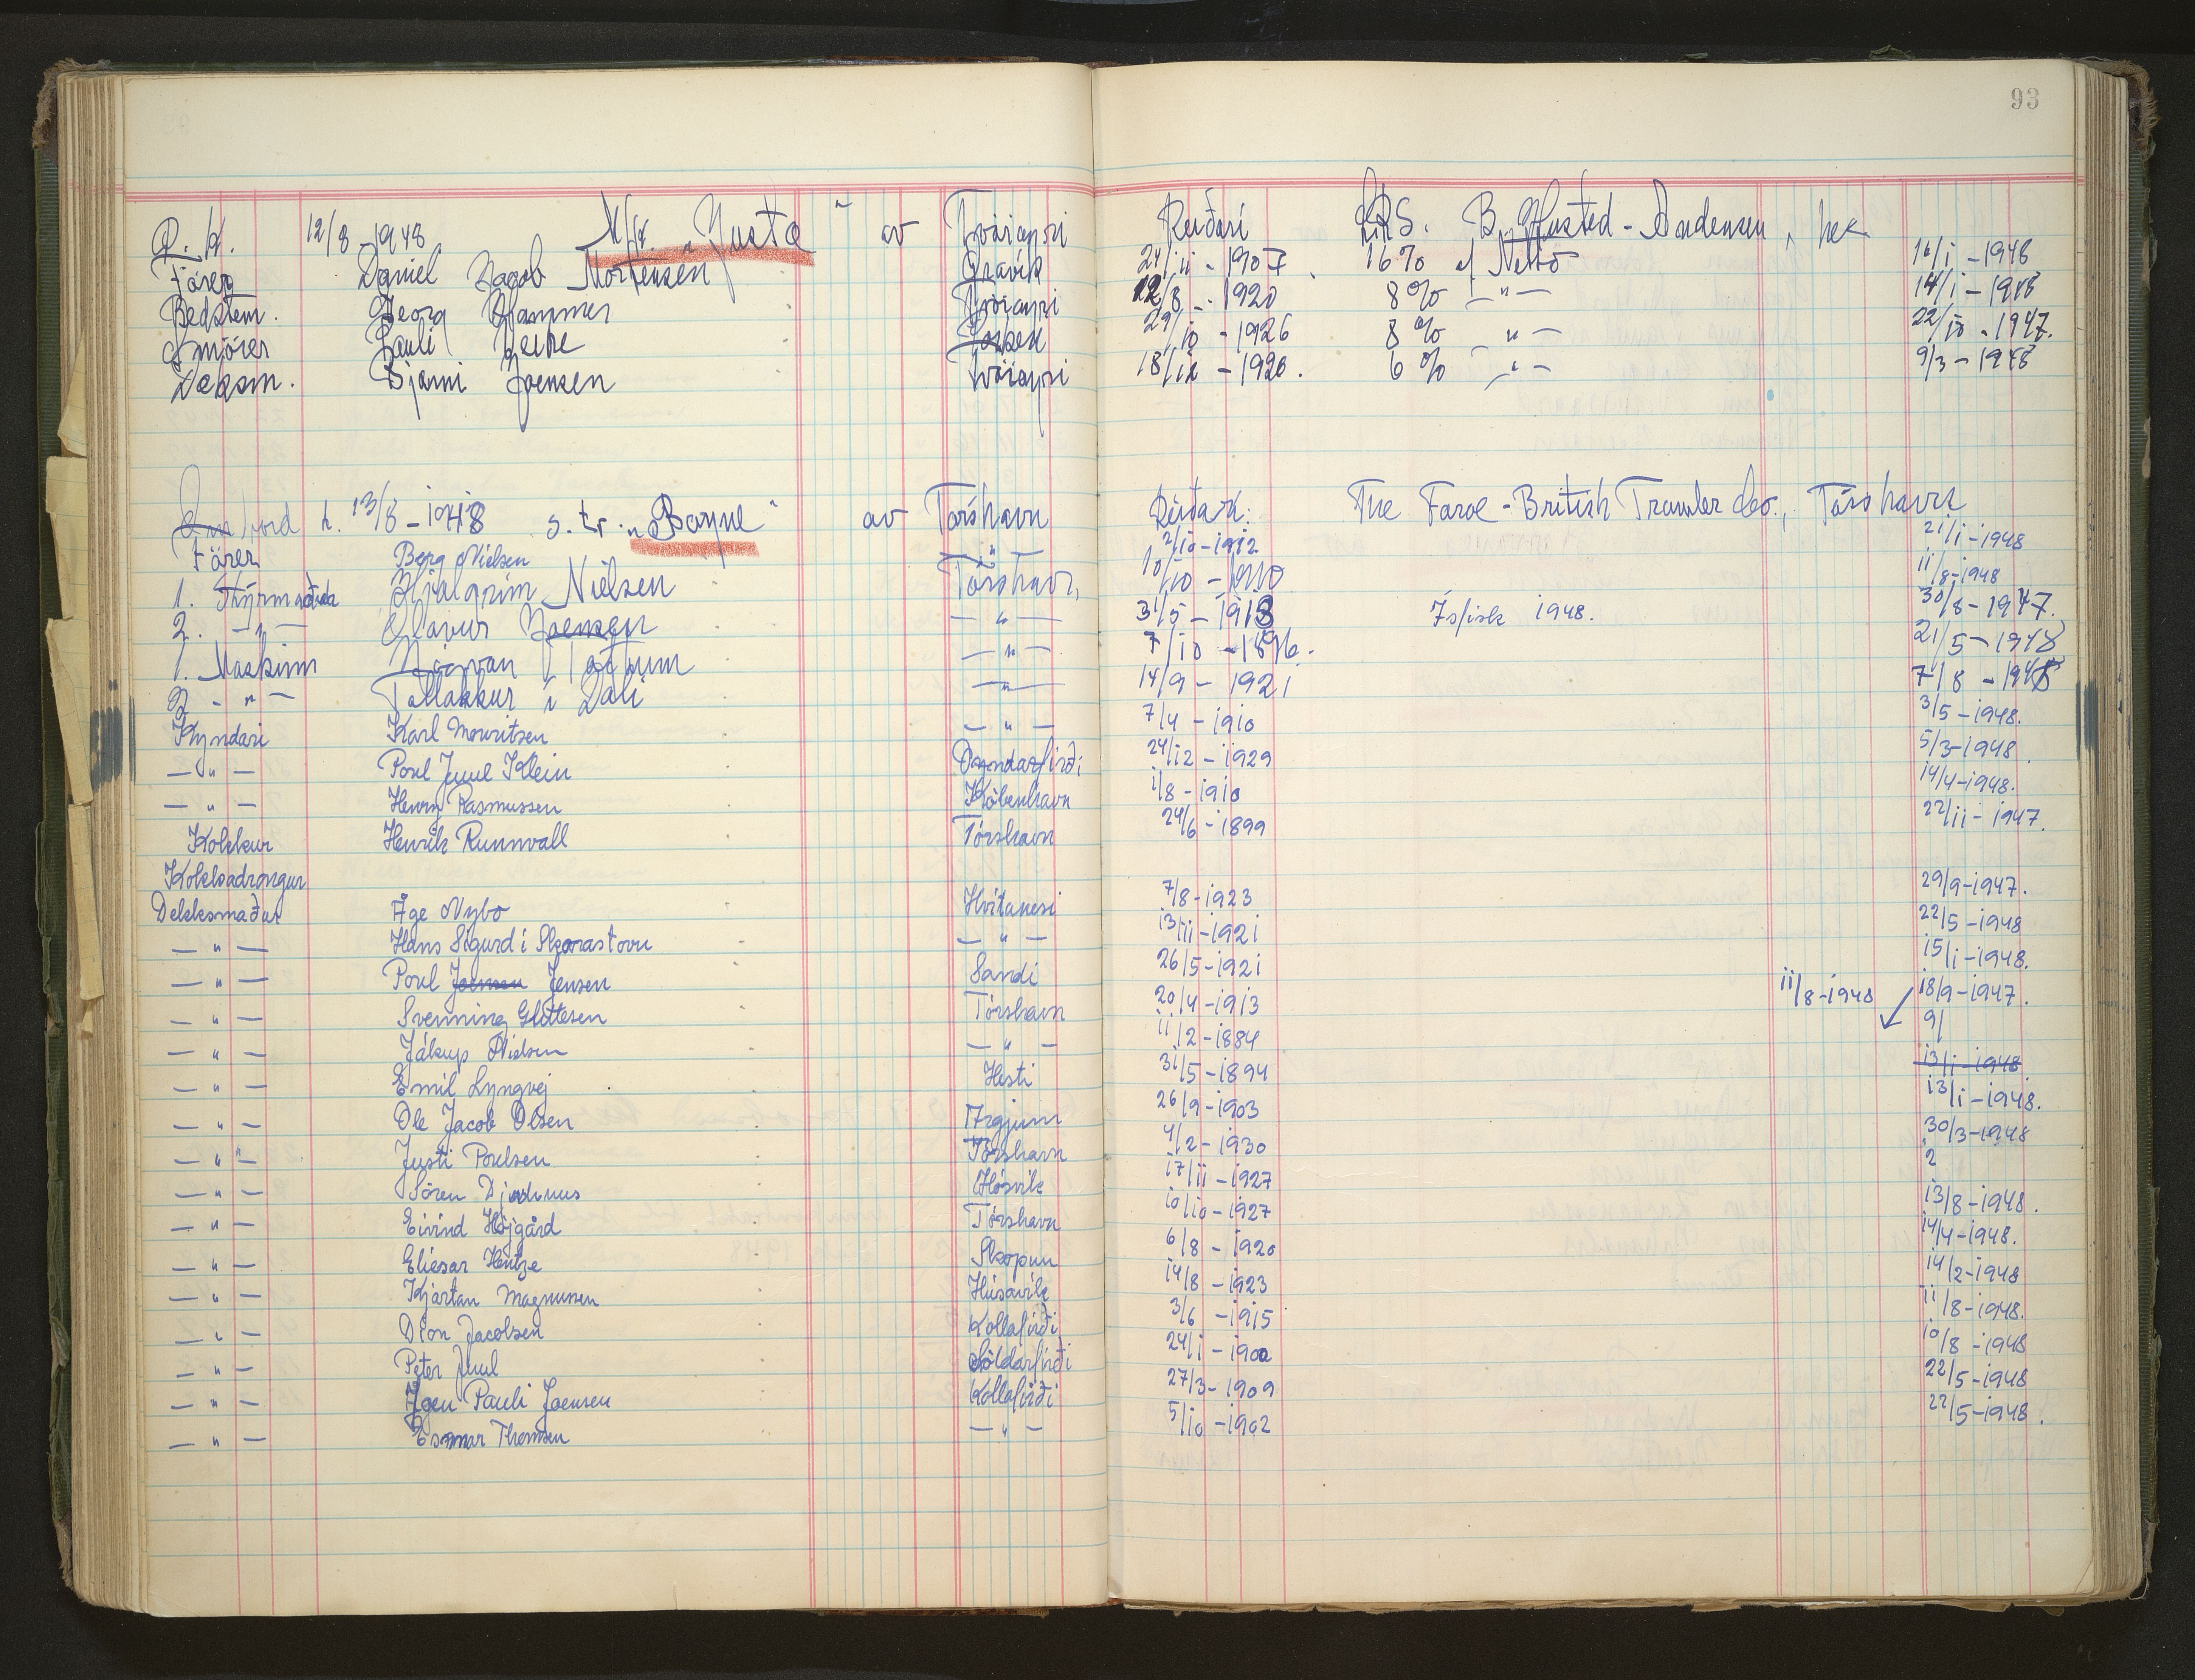 93
12/8 - 1948 M/sk. "Justa" av Tvöroyri Reiðari B. Husted-Andersen, hek
Förer Daniel Jacob Mortensen 24/11 - 1907 16% af Netto 16/1 - 1948
Bedstem. Georg Hammer Tvöroyri 12/8 - 1920 8% - " - 14/1 - 1948
Smörer Pauli 29/10 - 1926 8% - " - 22/10 - 1947.
Dæksm. Bjarni Joensen Tvöroyri 18/12 - 1920. 6% - " - 9/3 - 1948
h. 13/8 - 1948 s. tr. "Bayne" av Tórshavn The Faroe-British Trawler Co., Tórshavn
Förer Berg Nielsen - " - 2/10 - 1912 21/1 - 1948
1. Stýrmaður Hjálgrim Nielsen Tórshavn, 10/10 - 1910 11/8 - 1948
2. - " - Olavur Joensen - " - 31/5 - 1913 Ísfisk 1948. 30/8 - 1947.
1. Maskinm - " - 7/10 - 1896. 21/5 - 1948
2 - " - Tollakkur í Dali - " - 14/9 - 1921 7/8 - 1948
Kyndari Karl Mouritsen - " - 7/4 - 1910 3/5 - 1948.
- " - Poul Juul Klein Oyndarfirði 24/12 - 1929 5/3 - 1948.
- " - Henry Rasmussen Köbenhavn 1/8 - 1910 14/4 - 1948.
Kokkur Henrik Runnvall Tórshavn 24/6 - 1899 22/11 - 1947.
Kokksadrongur
Dekksmaður Åge Nybo Hvítanesi 7/8 - 1923 29/9 - 1947.
- " - Hans Sigurd í Skorastovu - " - 13/11 - 1921 22/5 - 1948
- " - Poul Joensen Jensen Sandi 26/5 - 1921 15/1 - 1948.
- " - Svenning Glottesen Tórshavn 20/4 - 1913 11/8 - 1948 18/9 - 1947.
- " - Jákup Nielsen - " - 11/2 - 1884 9/
- " - Emil Lyngvej Hesti 31/5 - 1894 13/1 - 1948
- " - Ole Jacob Olsen Argjum 26/9 - 1903 13/1 - 1948.
- " - Justi Poulsen Tórshavn 4/2 - 1930 30/3 - 1948
- " - Sören Djurhuus Hósvík 17/11 - 1927 2
- " - Eivind Höjgård Tórshavn 10/10 - 1927 13/8 - 1948.
- " - Eliesar Hentze Skopun 6/8 - 1920 14/4 - 1948.
- " - Kjartan Magnussen Húsavík 14/8 - 1923 14/2 - 1948
- " - Dion Jacobsen Kollafirði 3/6 - 1915 11/8 - 1948.
- " - Peter Juul Söldarfirði 24/1 - 1900 10/8 - 1948
- " - Pauli Joensen Kollafirði 27/3 - 1909 22/5 - 1948
- " - Thomsen - " - 5/10 - 1902 22/5 - 1948.